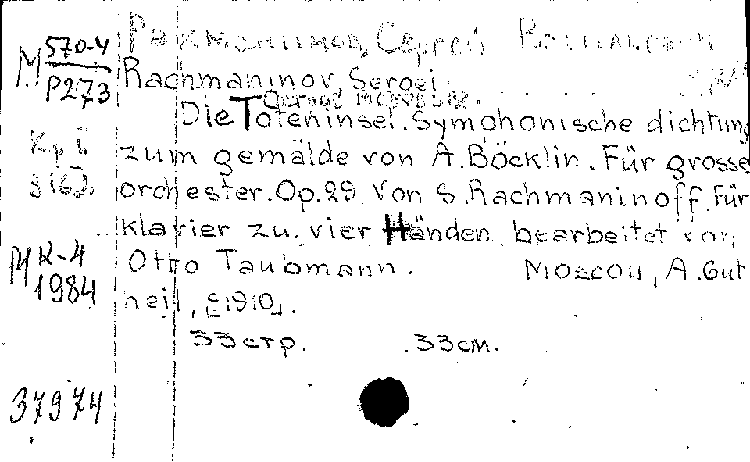 М 570-4
Р273
Рахманинов, Сергей
Rachmaninov Sergei
Остров мертвых.
Die Toteninsel. Symphonische dichtung
zum gemälde von A. Böcklin. Für grosse
orchester. Op. 29 Von S. Rachmaninoff. Für
klavier zu vier Händen bearbeitet von
МК-4
1984
Otto Taubmann. Moscou, A. Gut
heil, [1910].
33 стр. 33 см.
37974